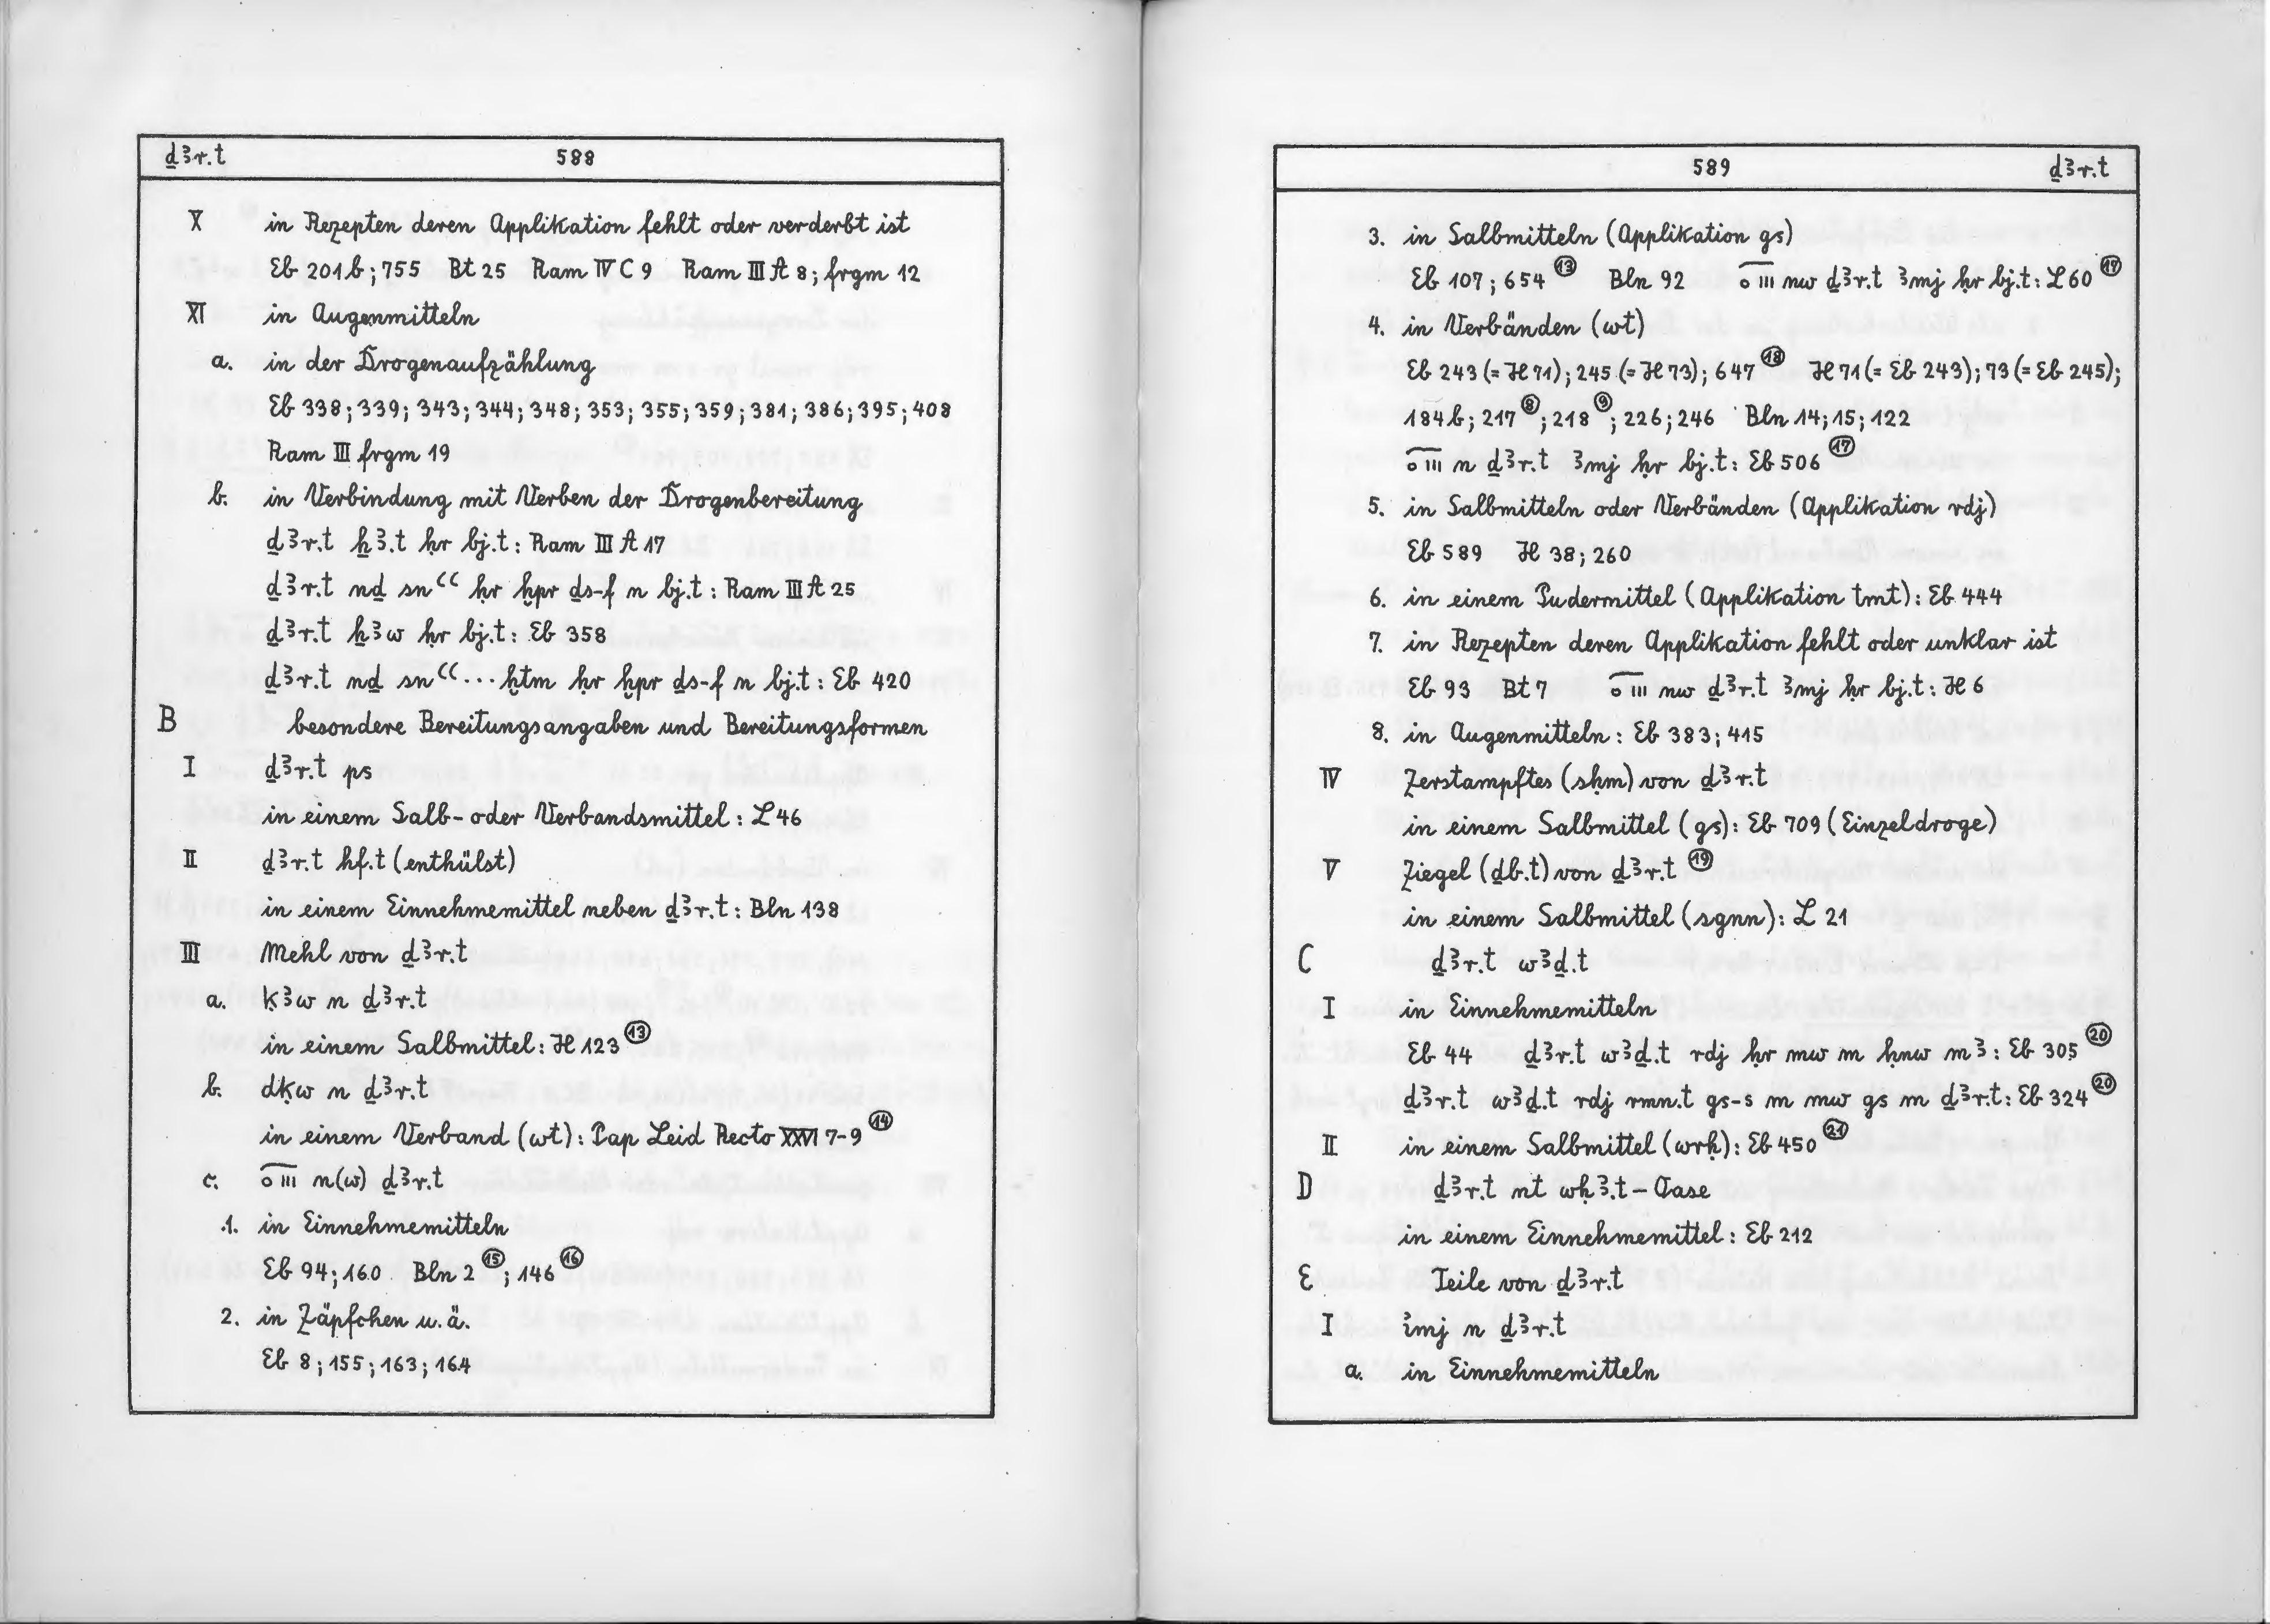 ḏꜣr.t 588
X in Rezepten deren Applikation fehlt oder verderbt ist
Eb 201b; 755 Bt 25 Ram IV C 9 Ram III A 8; frgm 12
XI in Augenmitteln
a. in der Drogenaufzählung
Eb 338; 339; 343; 344; 348; 353; 355; 359; 381; 386; 395; 408
Ram III frgm 19
b. in Verbindung mit Verben der Drogenbereitung
ḏꜣr.t ẖꜣ.t ḥr bj.t: Ram III A 17
ḏꜣr.t nḏ snꜥꜥ ḥr ḫpr ḏs-f n bj.t: Ram III A 25
ḏꜣr.t ẖꜣw ḥr bj.t: Eb 358
ḏꜣr.t nḏ snꜥꜥ ... ḫtm ḥr ḫpr ḏs-f n bj.t: Eb 420
B besondere Bereitungsangaben und Bereitungsformen
I ḏꜣr.t ps
in einem Salb- oder Verbandsmittel: L 46
II ḏꜣr.t hf.t (enthülst)
in einem Einnehmemittel neben ḏꜣr.t: Bln 138
III Mehl von ḏꜣr.t
a. ḳꜣw n ḏꜣr.t
in einem Salbmittel: H 123 ⑬
b. dḳw n ḏꜣr.t
in einem Verband (wt): Pap Leid Recto XXVI 7-9 ⑭
c. o III n(w) ḏꜣr.t
1. in Einnehmemitteln
Eb 94; 160 Bln 2 ⑮; 146 ⑯
2. in Zäpfchen u. ä.
Eb 8; 155; 163; 164
589 ḏꜣr.t
3. in Salbmitteln (Applikation gs)
Eb 107; 654 ⑬ Bln 92 o III nw ḏꜣr.t ꜣmj ḥr bj.t: L 60 ⑰
4. in Verbänden (wt)
Eb 243 (= H 71); 245 (= H 73); 647 ⑱ H 71 (= Eb 243); 73 (= Eb 245);
184b; 217 ⑧; 218 ⑨; 226; 246 Bln 14; 15; 122
o III n ḏꜣr.t ꜣmj ḥr bj.t: Eb 506 ⑰
5. in Salbmitteln oder Verbänden (Applikation rdj)
Eb 589 H 38; 260
6. in einem Pudermittel (Applikation tmt): Eb 444
7. in Rezepten deren Applikation fehlt oder unklar ist
Eb 93 Bt 7 o III nw ḏꜣr.t ꜣmj ḥr bj.t: H 6
8. in Augenmitteln: Eb 383; 415
IV Zerstampftes (sḥm) von ḏꜣr.t
in einem Salbmittel (gs): Eb 709 (Einzeldroge)
V Ziegel (ḏb.t) von ḏꜣr.t ⑲
in einem Salbmittel (sgnn): L 21
C ḏꜣr.t wꜣḏ.t
I in Einnehmemitteln
Eb 44 ḏꜣr.t wꜣḏ.t rdj ḥr mw m hnw mꜣ: Eb 305 ⑳
ḏꜣr.t wꜣḏ.t rdj rmn.t gs-s m mw gs m ḏꜣr.t: Eb 324 ⑳
II in einem Salbmittel (wrḥ): Eb 450 ㉑
D ḏꜣr.t nt wḥꜣ.t - Oase
in einem Einnehmemittel: Eb 212
E Teile von ḏꜣr.t
I ỉmj n ḏꜣr.t
a. in Einnehmemitteln